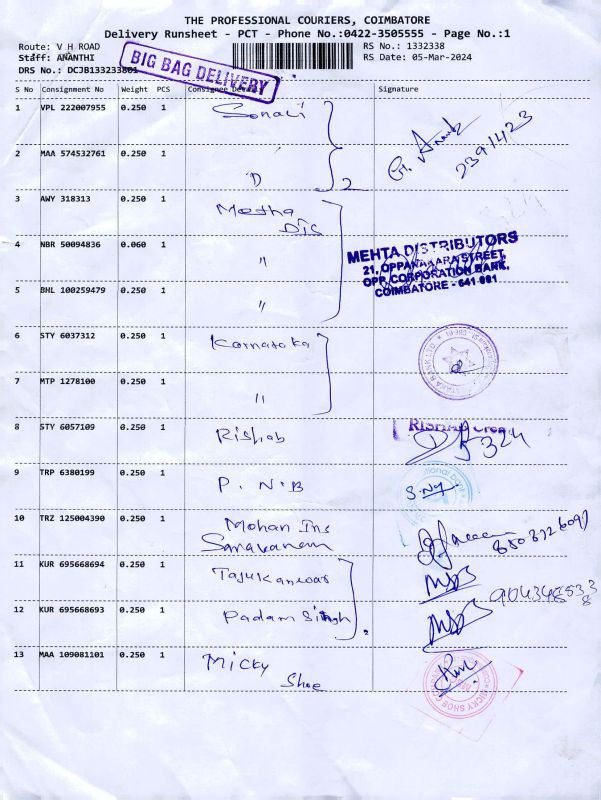 THE PROFESSIONAL COURIERS, COIMBATORE
Delivery Runsheet - PCT - Phone No.:0422-3505555 - Page No.:1
Route: V H ROAD RS No.: 1332338
Staff: ANANTHI RS Date: 05-Mar-2024
DRS No.: DCJB133233801
BIG BAG DELIVERY
S No Consignment No Weight PCS Consignee Details Signature
1 VPL 222007955 0.250 1 Sonali
2 MAA 574532761 0.250 1 D 2
2391423
3 AWY 318313 0.250 1 Meetha
Dis
4 NBR 50094836 0.060 1 "
MEHTA DISTRIBUTORS
21, OPPANAKARA STREET,
OPP. CORPORATION BANK,
COIMBATORE - 641 001
5 BHL 100259479 0.250 1 "
6 STY 6037312 0.250 1 Karnataka
7 MTP 1278100 0.250 1 "
8 STY 6057109 0.250 1 Rishab
RISHAB
324
9 TRP 6380199 0.250 1 P. N. B
10 TRZ 125004390 0.250 1 Mohan Ins
Saravanan
11 KUR 695668694 0.250 1 Tajukanwar
12 KUR 695668693 0.250 1 Padam Singh
13 MAA 109081101 0.250 1 Micky
Shoe
MICKY SHOE